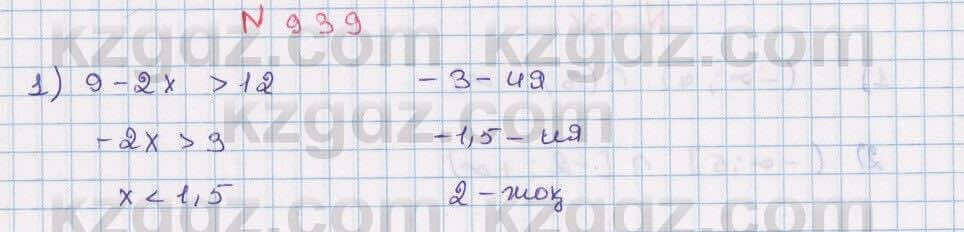 N 939
1) 9 - 2x > 12 - 3 - ия
- 2x > 3 - 1,5 - ия
x < 1,5 2 - жоқ
kzgdz.com kzgdz.com
kzgdz.com
kzgdz.com kzgdz.com